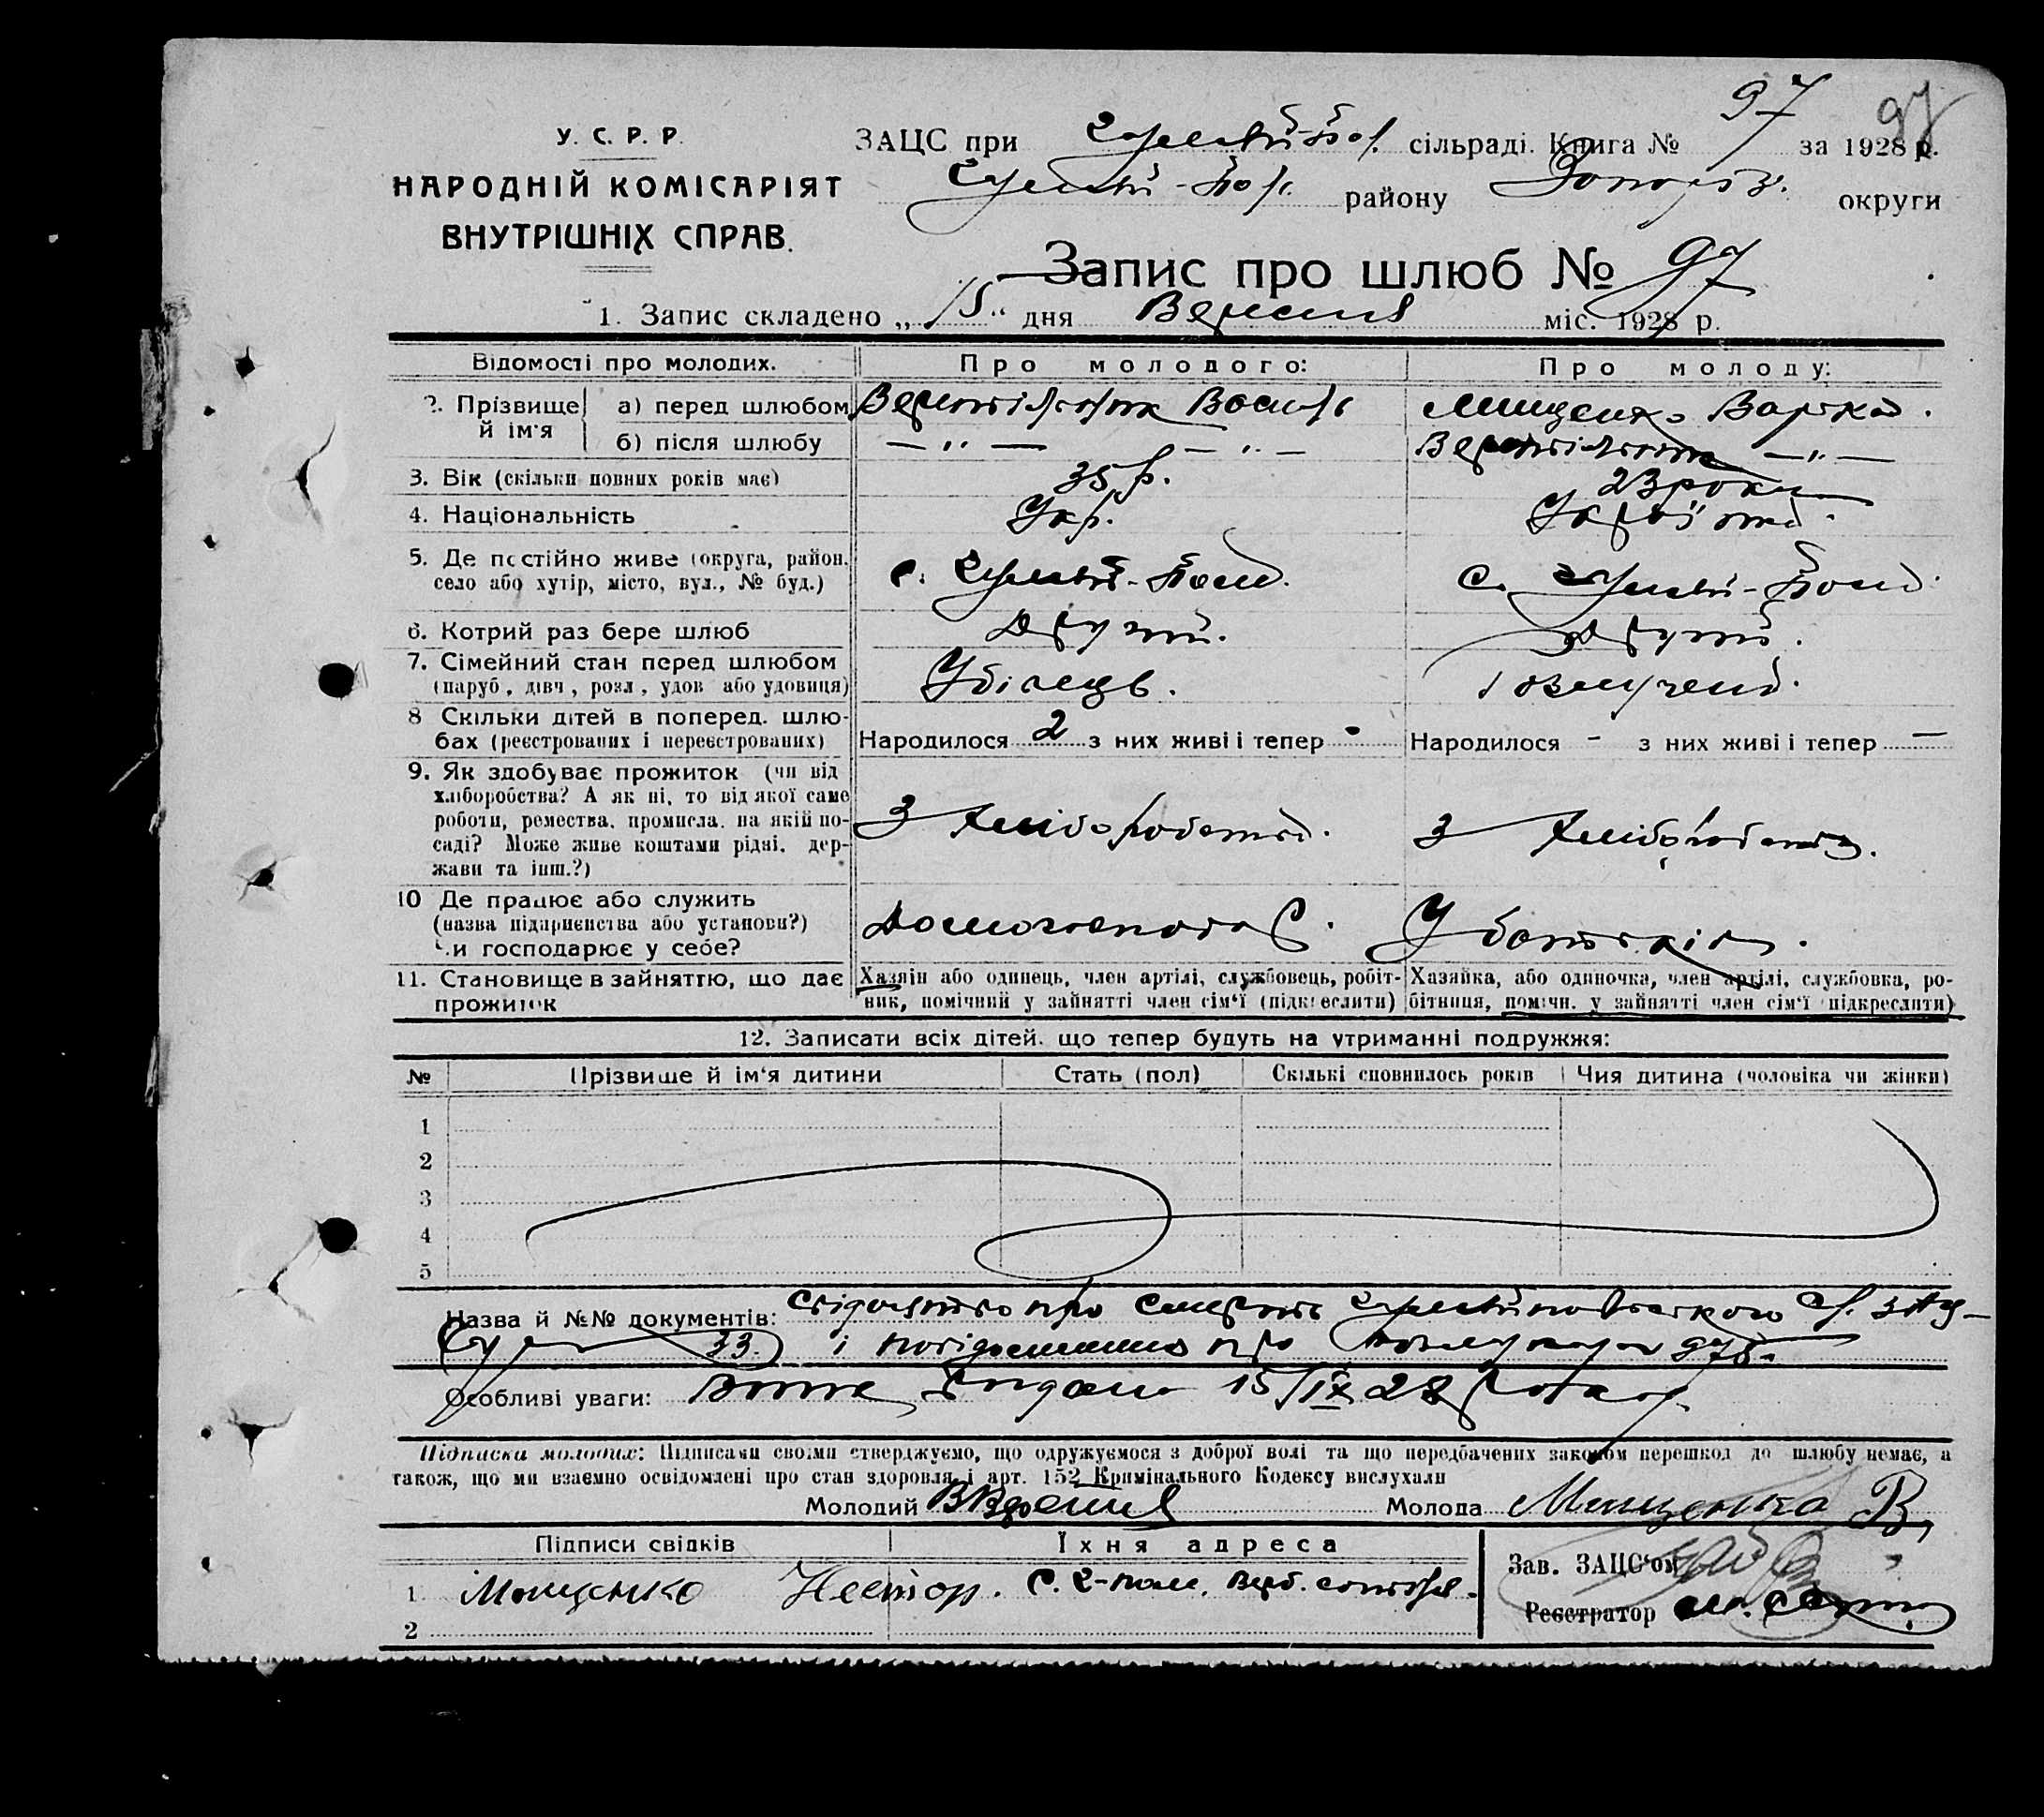 97
У. С. Р. Р.
ЗАЦС при сільраді. Книга № 97 за 1928 р.
НАРОДНІЙ КОМІСАРІЯТ
району округи
ВНУТРІШНІХ СПРАВ.
Запис про шлюб № 97
1. Запис складено „ 15 “ дня Вересня міс. 1928 р.
Відомості про молодих. Про молодого: Про молоду:
2. Прізвище й ім'я а) перед шлюбом Василь Мищенко Варька.
б) після шлюбу — „ — — „ — — „ —
3. Вік (скільки повних років має) 35 р. 23 роки
4. Національність Укр. Українка.
5. Де постійно живе (округа, район, с. с.
село або хутір, місто, вул., № буд.)
6. Котрий раз бере шлюб Другий. Другий.
7. Сімейний стан перед шлюбом
(паруб., дівч., розл., удов. або удовиця) Удівець. Розлучена.
8 Скільки дітей в поперед. шлю-
бах (реєстрованих і нереєстрованих) Народилося 2 з них живі і тепер - Народилося - з них живі і тепер —
9. Як здобуває прожиток (чи від
хліборобства? А як ні, то від якої саме
роботи, ремества, промисла, на якій по- З хліборобства. З хліборобства.
саді? Може живе коштами рідні, дер-
жави та інш.?)
10 Де працює або служить
(назва підприємства або установи?) Домогосподар. У батьків.
Чи господарює у себе?
11. Становище в зайняттю, що дає Хазяїн або одинець, член артілі, службовець, робіт- Хазяйка, або одиночка, член артілі, службовка, ро-
прожиток ник, помічний у зайнятті член сім'ї (підкреслити) бітниця, помічн. у зайнятті член сім'ї підкреслити)
12. Записати всіх дітей, що тепер будуть на утриманні подружжя:
№ Прізвище й ім'я дитини Стать (пол) Скількі сповнилось років Чия дитина (чоловіка чи жінки)
1
2
3
4
5
Назва й №№ документів: свідоцтво про смерть
33. і про
Особливі уваги: видано 15/IX 28
Підписка молодих: Підписами своїми стверджуємо, що одружуємося з доброї волі та що передбачених законом перешкод до шлюбу немає, а
також, що ми взаємно освідомлені про стан здоровля і арт. 152 Кримінального Кодексу вислухали
Молодий Молода Мищенко В.
Підписи свідків Їхня адреса
Зав. ЗАЦС'ом
1 Мищенко Нестор. с.
Реєстратор
2